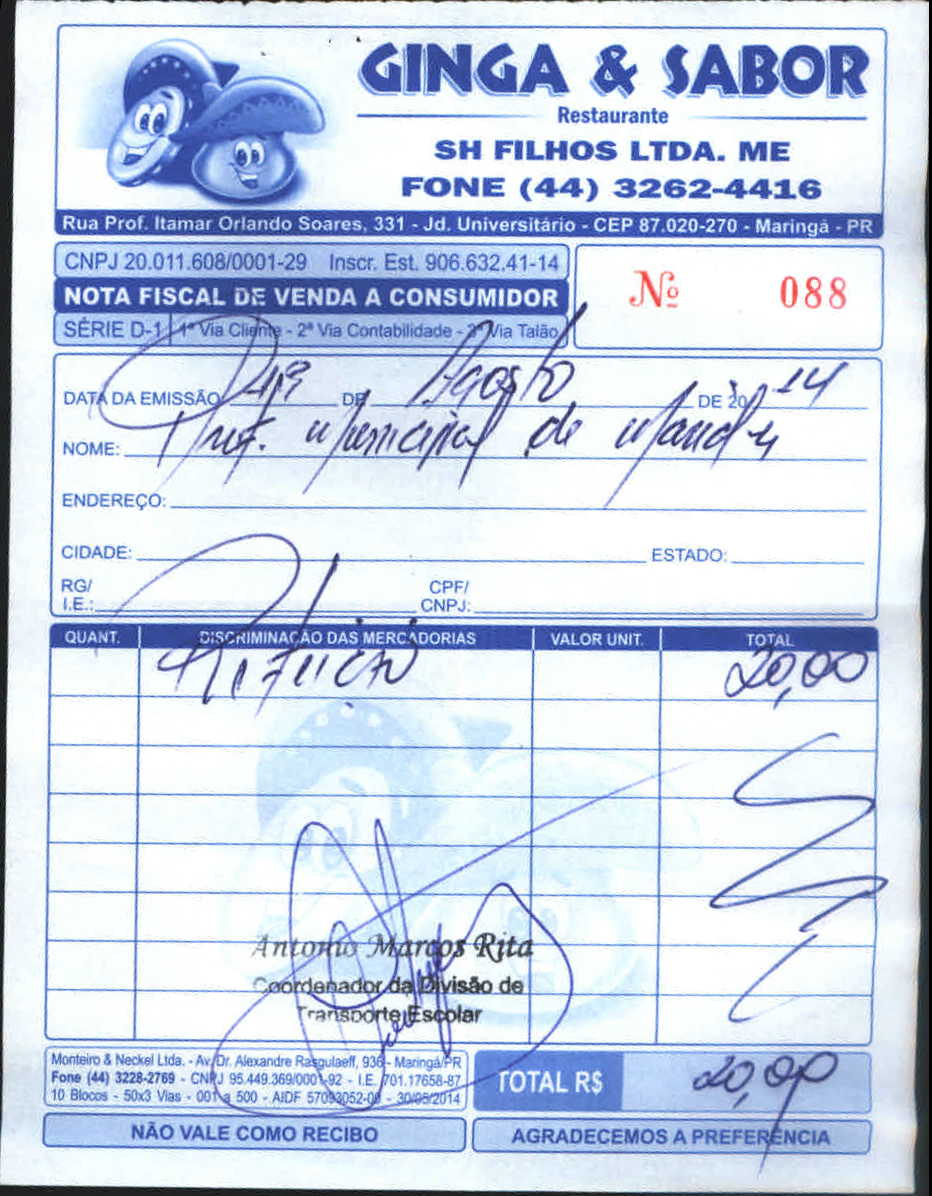 GINGA & SABOR
Restaurante
SH FILHOS LTDA. ME
FONE (44) 3262-4416
Rua Prof. Itamar Orlando Soares, 331 - Jd. Universitário - CEP 87.020-270 - Maringá - PR
CNPJ 20.011.608/0001-29 Inscr. Est. 906.632.41-14
NOTA FISCAL DE VENDA A CONSUMIDOR
Nº 088
SÉRIE D-1 1ª Via Cliente - 2ª Via Contabilidade - 3ª Via Talão
DATA DA EMISSÃO DE Agosto DE 20 14
NOME: Pref. Municipal de
ENDEREÇO:
CIDADE: ESTADO:
RG/ I.E.: CPF/ CNPJ:
QUANT. DISCRIMINAÇÃO DAS MERCADORIAS VALOR UNIT. TOTAL
Refeição 20,00
Antonio Marcos Rita
Coordenador da Divisão de
Transporte Escolar
Monteiro & Neckel Ltda. - Av. Dr. Alexandre Rasgulaeff, 936 - Maringá/PR
Fone (44) 3228-2769 - CNPJ 95.449.369/0001-92 - I.E. 701.17658-87
10 Blocos - 50x3 Vias - 001 a 500 - AIDF - 30/05/2014
TOTAL R$ 20,00
NÃO VALE COMO RECIBO
AGRADECEMOS A PREFERÊNCIA